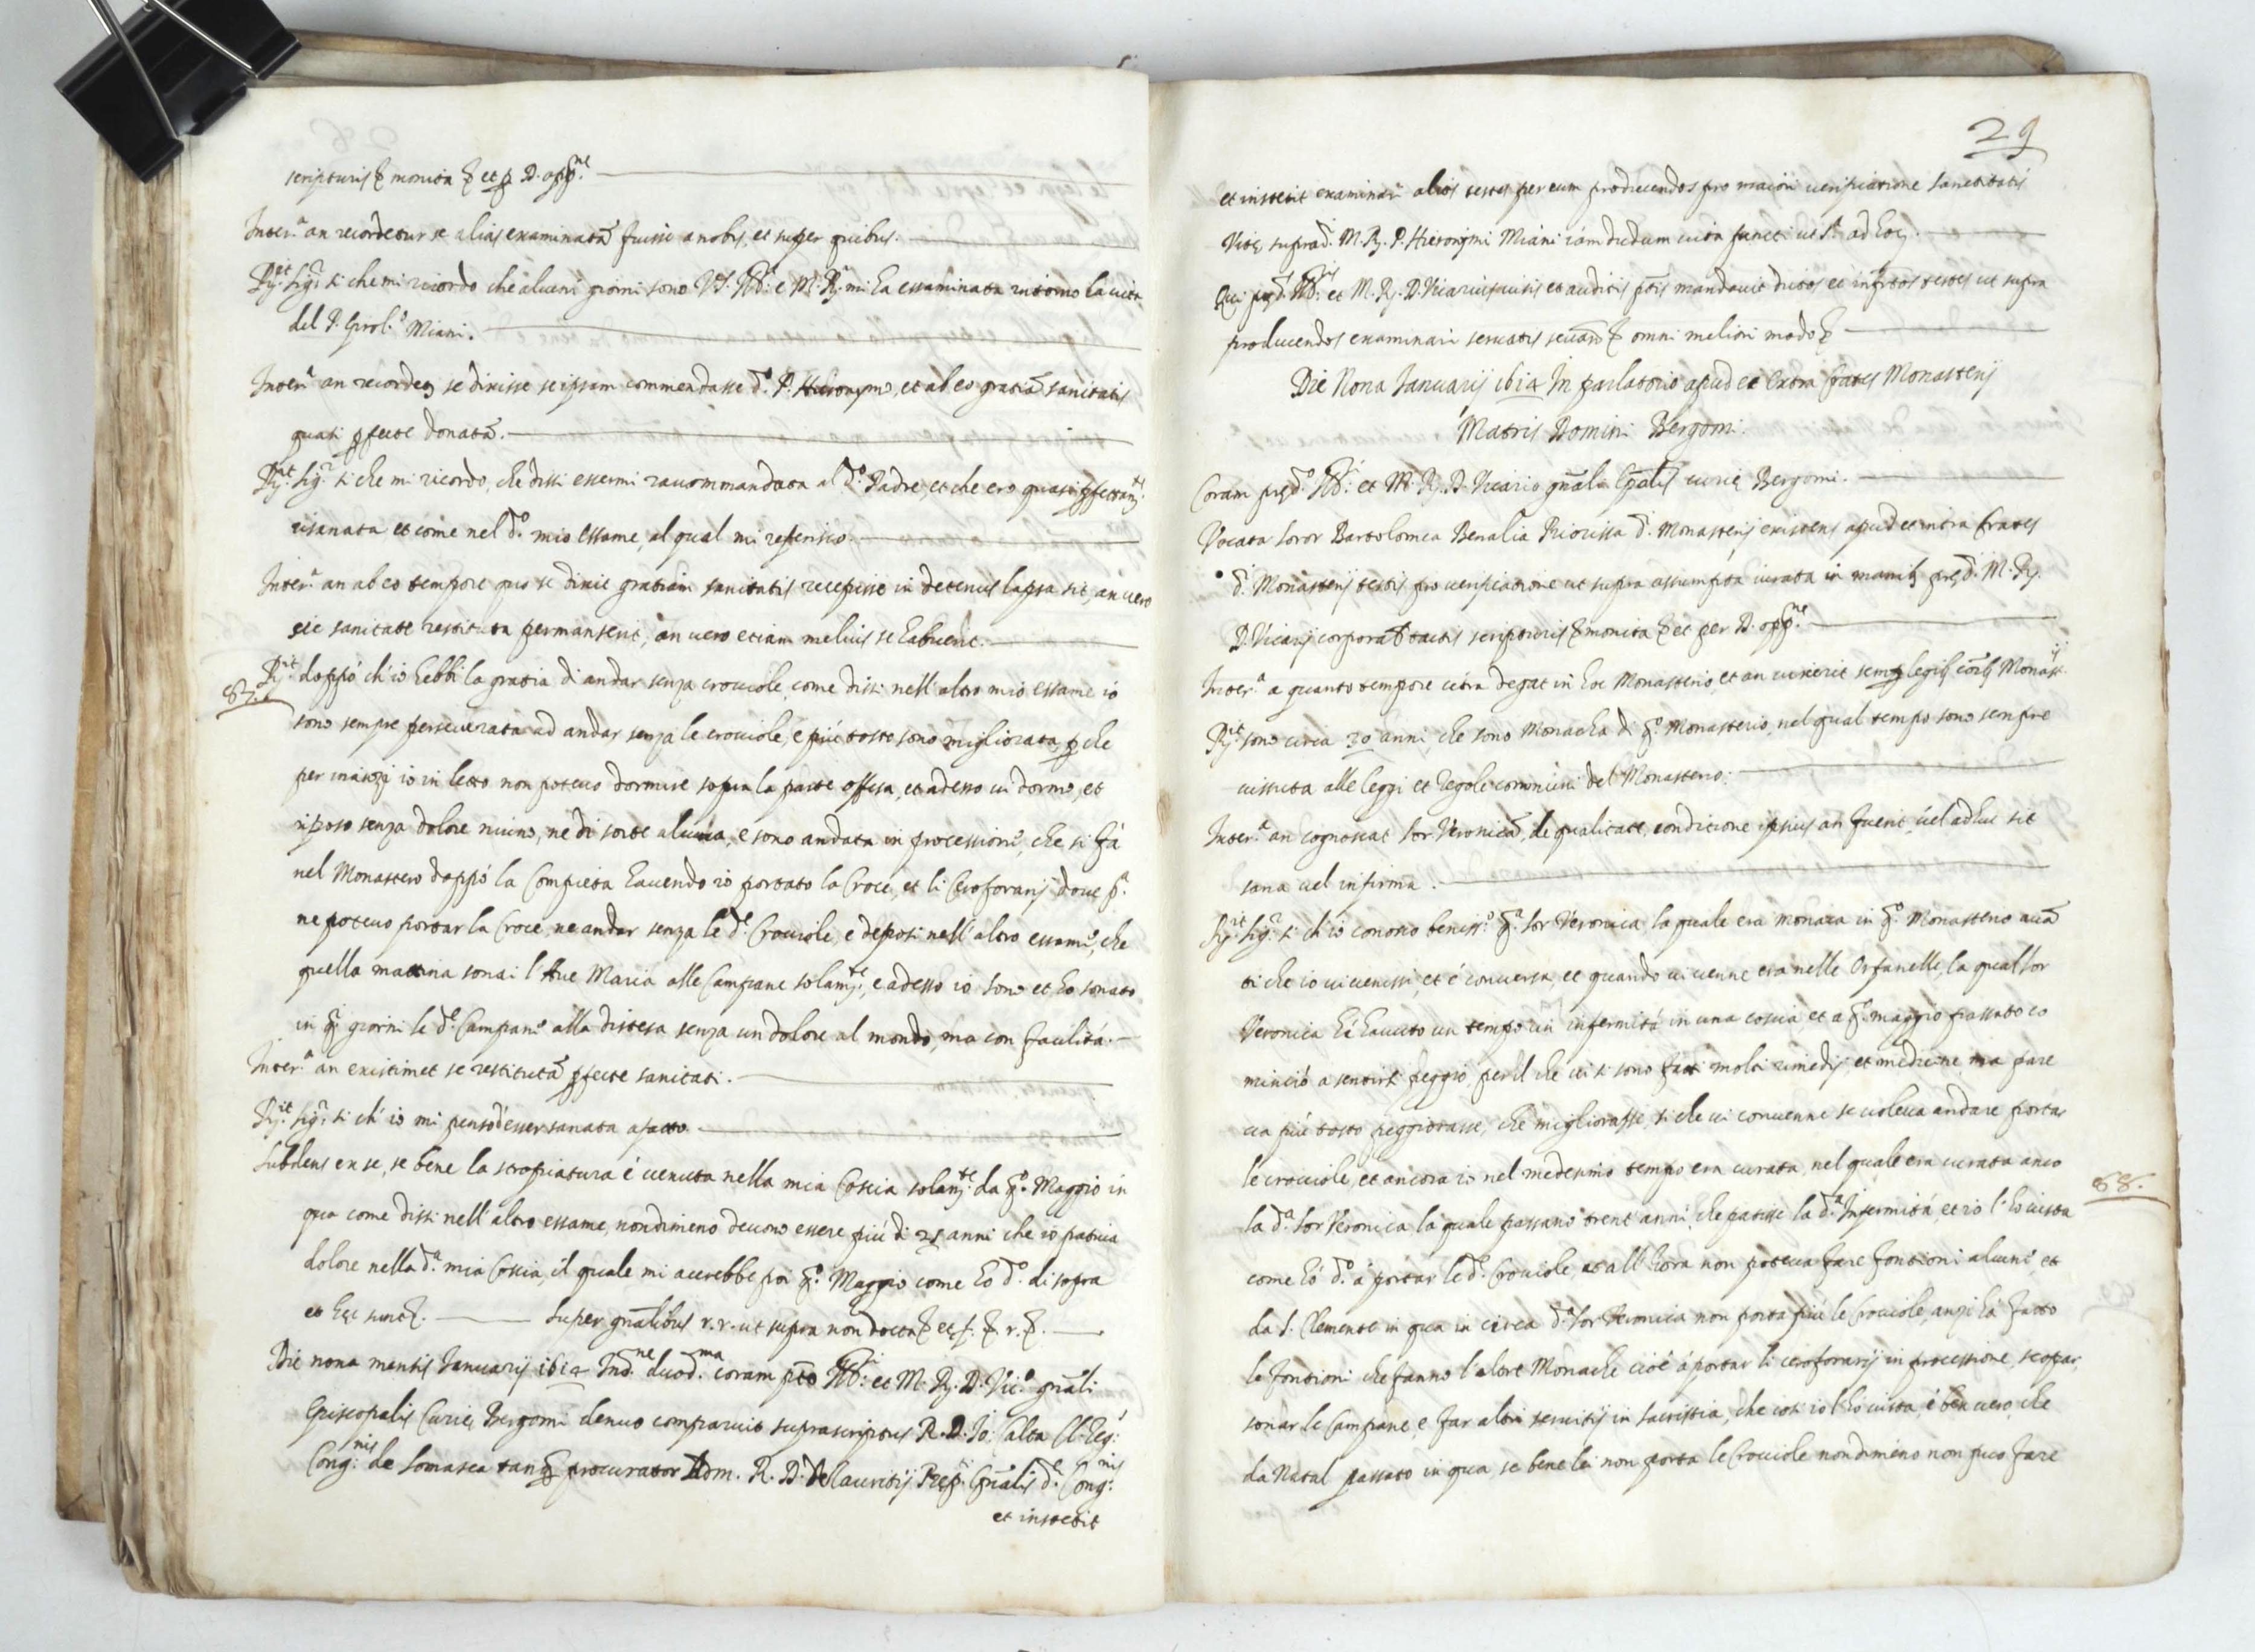 scripturis & monita & et p D. opp.ne
Inter.a an recordetur se alias examinatā fuisse a nobis, et super quibus.
R.it sig.r si che mi ricordo che alcuni giorni sono V.S. Ill: e M. R. mi ha essaminata intorno la vita
del P. Girol.o Miani.
Inter.a an recordet se dixisse se ipsam commendasse d.o P. Hieronymo, et ab eo gratiā sanitatis
quasi pfecte donatā.
R.it sig.r si che mi ricordo, che dissi essermi raccommandata al d.o Padre, et che ero quasi pfettam.te
risanata et come nel d.o mio essame, al qual mi referisco.
Inter.a an ab eo tempore quo se dixit gratiam sanitatis recepisse in deterius lapsa sit, an vero
sic sanitate restituta permanserit, an vero etiam melius se habuerit.
87.
R.it doppò ch'io hebbi la gratia di andar senza crocciole, come dissi nell'altro mio essame io
sono sempre perseverata ad andar senza le crocciole, e più tosto sono migliorata, pche
per inanzi io in letto non potevo dormire sopra la parte offesa, et adesso vi dormo, et
riposo senza dolore niuno, ne di sorte alcuna, e sono andata in processione, che si fà
nel Monastero doppò la Compieta havendo io portato la Croce, et li Ceroforarij dove p.a
ne potevo portar la Croce, ne andar senza le d.e Crocciole, e deposi nell'altro essame, che
quella mattina sonai l'Ave Maria alle Campane solam.te, e adesso io sono et ho sonato
in q.i giorni le d.e Campane alla distesa senza un dolore al mondo, ma con facilità.
Inter.a an existimet se restitutā pfecte sanitati.
R.it sig.r si ch'io mi penso d'esser sanata afatto.
Subdens ex se, se bene la stroppiatura è venuta nella mia Coscia solam.te da q.o Maggio in
qua come dissi nell'altro essame, nondimeno devono essere più di 25 anni che io pativa
dolore nella d.a mia Coscia, il quale mi accrebbe poi q.o Maggio come ho d.o di sopra
et hęc sunt &. Super gnālibus r. r. ut supra non docta & et s. & r. &.
Die nona mensis Januarij 1614 Ind.ne duod.ma coram pto Ill: et M. R. D. Vic.o gnāli
Episcopalis Curię Bergomi denuo comparuit suprascriptus R. D. Io: Calta Cl. Reg:
Cong.nis de Somasca tanq procurator Adm. R. D. Mauritij Pręp.ti Gnālis d.e Cong.nis
et institit
29
et institit examinari alios testes per eum producendos pro maiori verificatione sanctitatis
Vitę suprad.i M. R. P. Hieronymi Miani iam dudum vita functi ut s.a ad hoc.
Qui pręd.s Ill: et M. R. D. Vicarius visis et auditis ptis mandavit dictos et infrtos testes ut supra
producendos examinari servatis servād & omni meliori modo &
Die Nona Januarij 1614 In parlatorio apud et extra Crates Monasterij
Matris Domini Bergomi.
Coram pręd.o Ill: et M. R. D. Vicario gnāli Epālis curię Bergomi.
Vocata Soror Bartolomea Benalia Priorissa d.i Monasterij existens apud et intra Crates
d.i Monasterij testis pro verificatione ut supra assumpta iurata in manib pręd.i M. R.
D. Vicarij corporalr tactis scripturis & monita & et per D. opp.ne
Inter.a a quanto tempore citra degat in hoc Monasterio, et an vixerit semp legib cōib Monast.ij
R.it sono circa 30 anni, che sono Monacha di q.o Monasterio, nel qual tempo sono sempre
vissuta alle leggi et Regole communi del Monasterio.
Inter.a an cognoscat Sor Veronicā, de qualitate, conditione ipsius an fuerit, vel adhuc sit
sana vel infirma.
R.it sig.r si ch'io conosco beniss.o q.a Sor Veronica la quale era monaca in q.o Monasterio avā
ti che io vi venissi, et è conversa, et quando vi venne era nelle Orfanelle, la qual Sor
Veronica hà havuto un tempo un' infermità in una coscia et a q.o maggio passato co
minciò a sentirsi peggio, per il che vi si sono fatti molti rimedij, et medicine, ma pare
va più tosto peggiorasse, che migliorasse, si che vi convenne se voleva andare portar
le crocciole, et ancora io nel medesimo tempo era curata, nel quale era curata anco
88.
la d.a Sor Veronica la quale passano trent'anni, che patisse la d.a Infermità, et io l'ho vista
come hò d.o à portar le d.e Crocciole, et all'hora non poteva fare fontioni alcune, et
da S. Clemente in qua in circa d.a Sor Veronica non porta più le Crocciole, anzi ha fatto
le fontioni che fanno l'altre Monache cioè à portar li ceroforarij in processione, scopar,
sonar le Campane, e far altri servitij in sacristia, che cosi io l'hò vista, è ben vero, che
da Natal passato in qua, se bene lei non porta le Crocciole nondimeno non puo fare